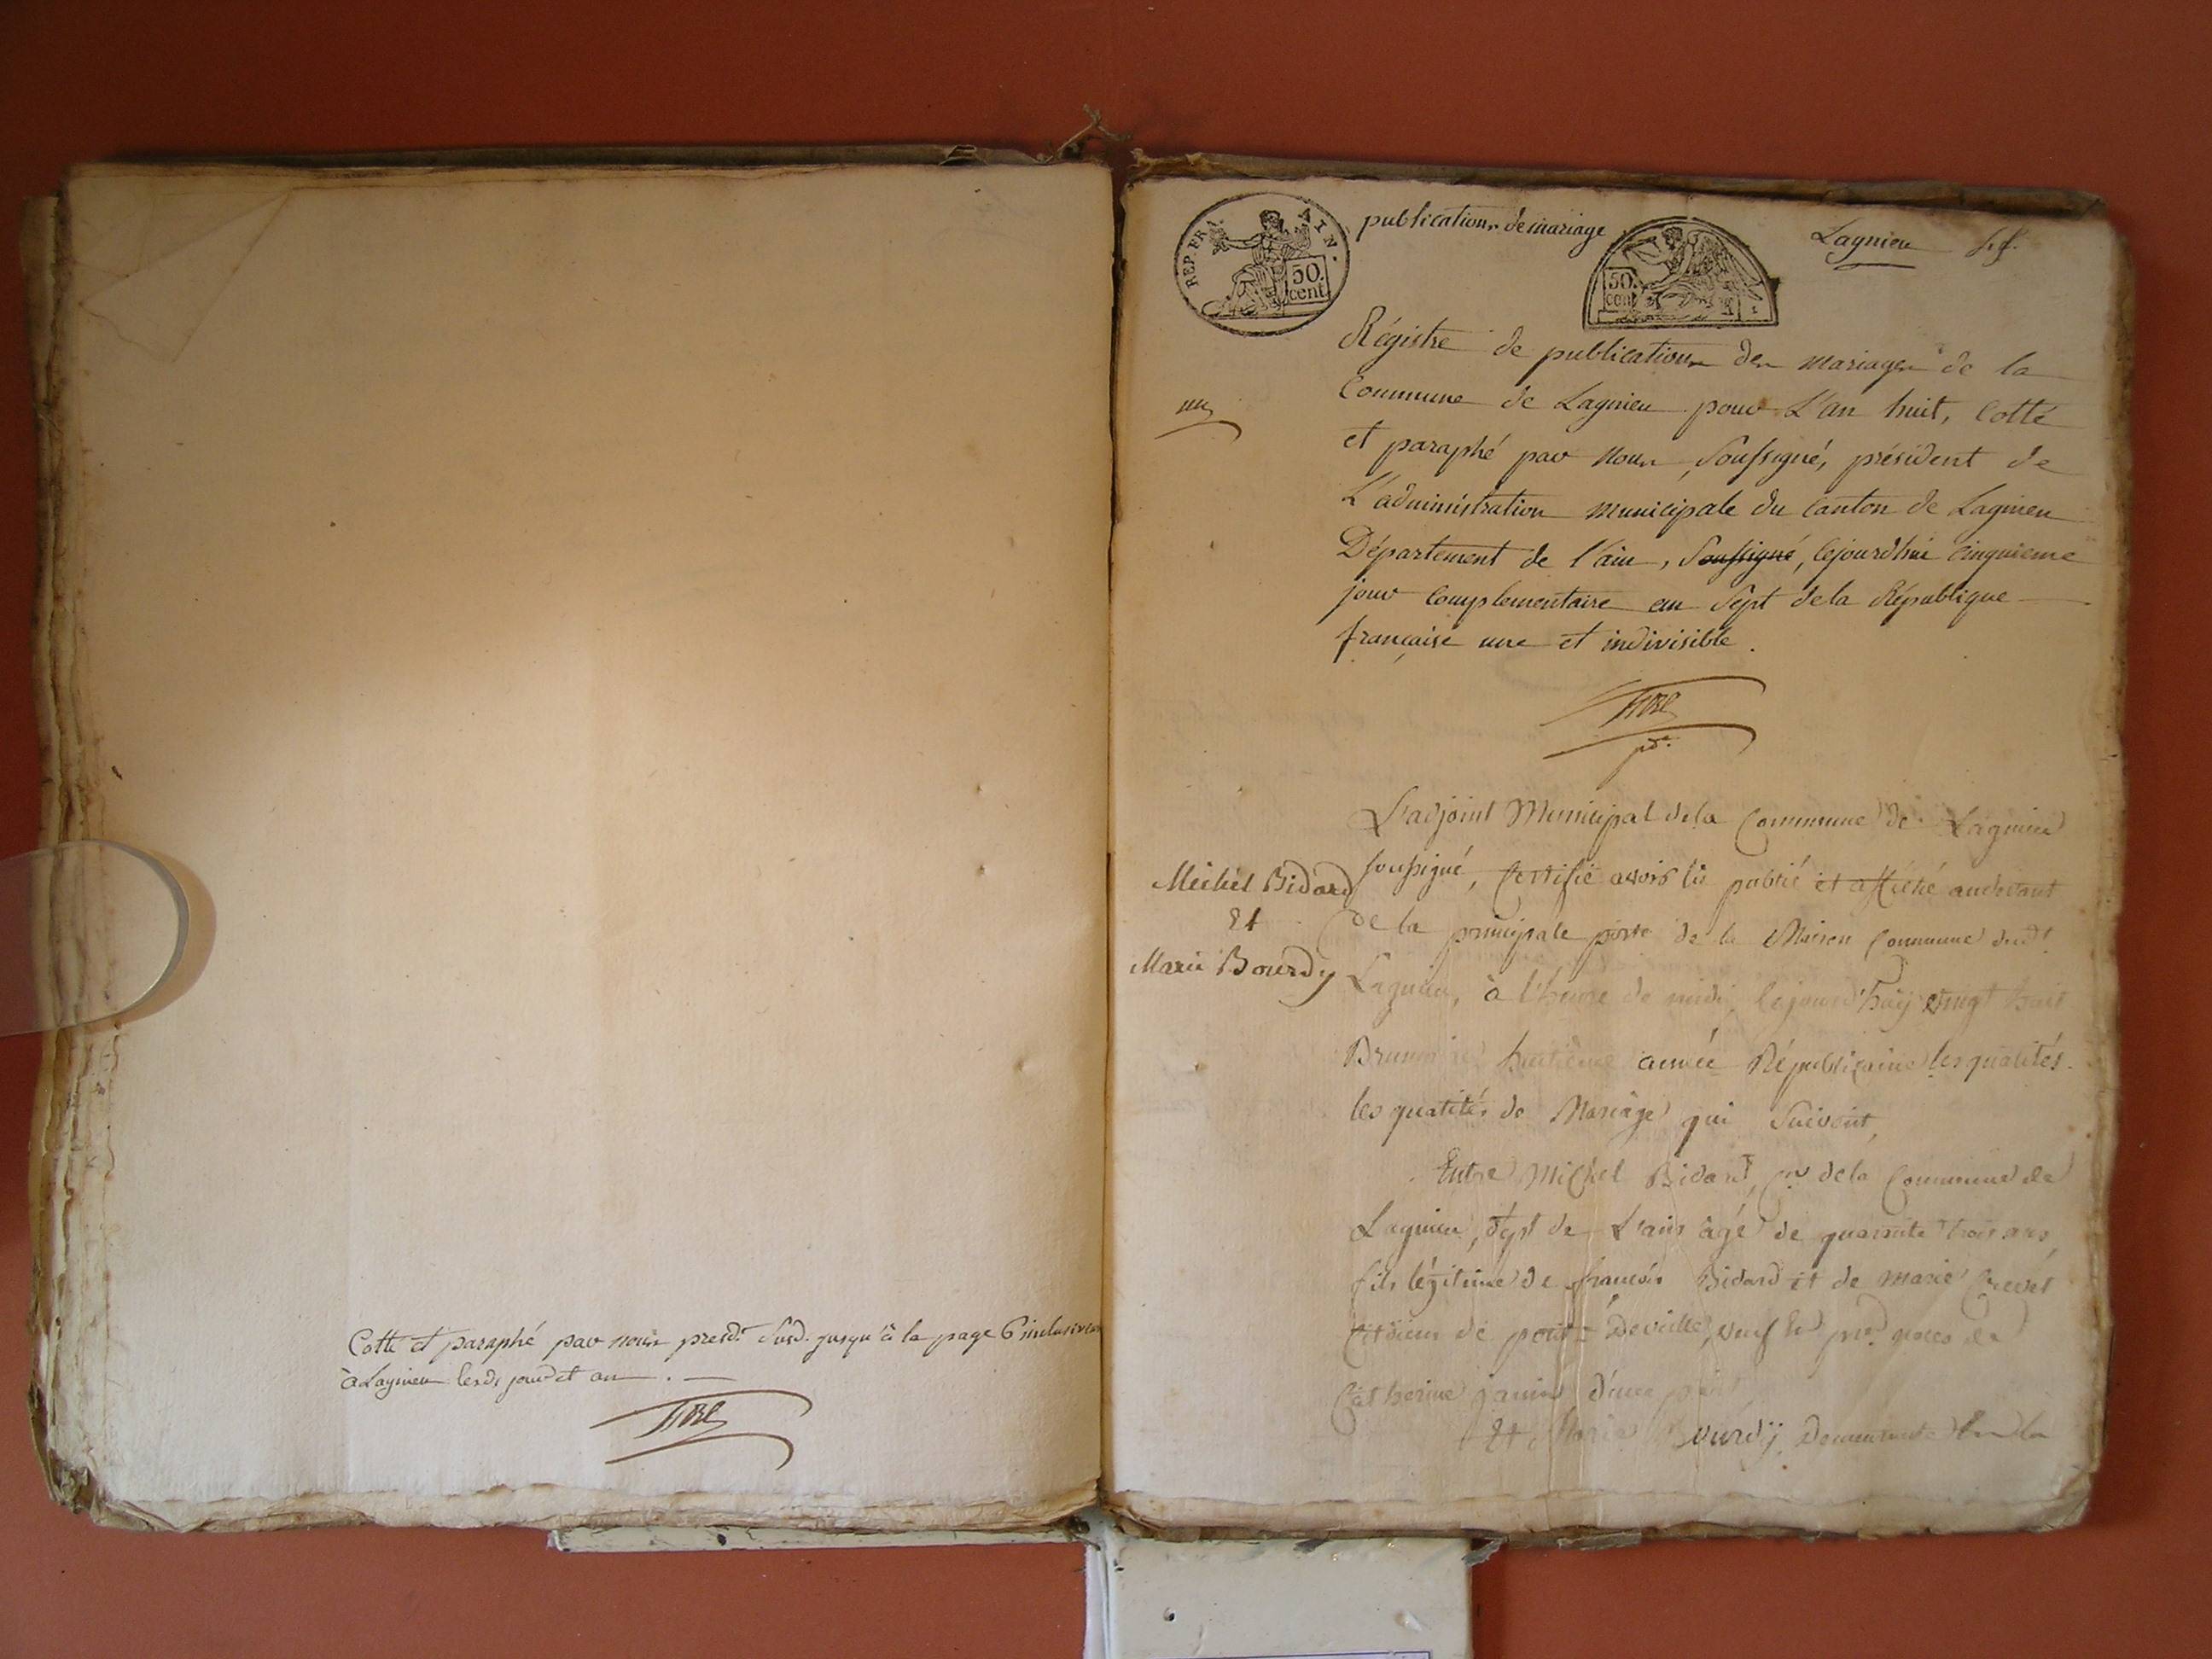 Cotté et paraphé par nous presdt. susd. jusqu'à la page 6 inclusivem
à Lagnieu lesds jour et an . —
publications de mariage
Lagnieu
REP. FRA.
AIN.
50.
cent.
50.
cent
Régistre de publications des mariages de la
Commune de Lagnieu pour L'an huit, Cotté
et paraphé par nous Soussigné, président de
L'administration municipale du Canton de Lagnieu
Département de l'ain, Soussigné, Cejourdhui cinquieme
jour Complementaire an Sept de la République
française une et indivisible.
pdt.
L'adjoint Municipal de la Commune de Lagnieu
soussigné, Certifie avoir lû publié et affiché audevant
de la principale porte de la Maison Commune dudt
Lagnieu, à l'heure de midi, cejourd'huÿ vingt huit
Brumaire huitième année Républicaine les qualités.
les qualités de Mariage qui Suivent,
Michel Bidard
Et
Marie Bourdy
Entre Michel Bidard, Cn. de la Commune de
Lagnieu, dept de L'ain âgé de quarante trois ans,
fils légitime de françois Bidard et de marie
Citoiens de petit veuf de noces de
Catherine janin d'une part
Et Marie Bourdÿ Demeurante la